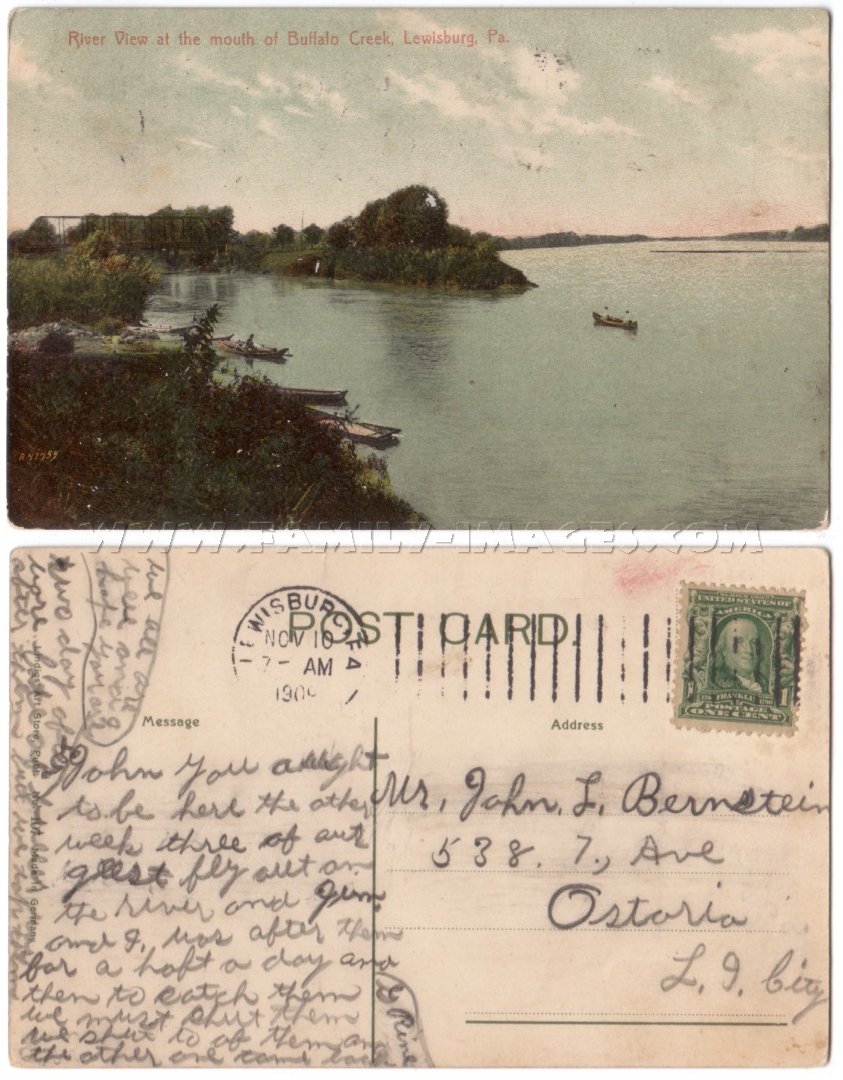 River View at the mouth of Buffalo Creek, Lewisburg, Pa.
A 41755
WWW.FAMILY-IMAGES.COM
LEWISBURG, PA
NOV 10
7 - AM
190
POST CARD.
UNITED STATES
AMERICA
FRANKLIN
POSTAGE
ONE CENT
1
Message
Address
John You aught
to be here the other
week three of aut
geest fly out on
the river and Jim
and I, was after them
for a haft a day and
then to catch them
we must shut them
we shut to of them an
the other one came back
two day
after
we all are
well and
hope you are
G Rine
Mr, John, L, Bernstein
538. 7., Ave
Ostoria
L. I. City
Germany